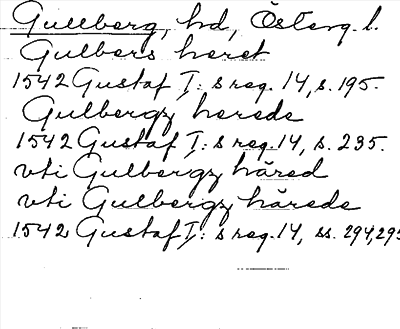 Gullberg, hd, Österg. l.
Gulbers heret
1542 Gustaf I: s reg. 14, s. 195.
Gulbergz herede
1542 Gustaf I: s reg. 14, s. 235.
vti Gulbergz häred
vti Gulbergz härede
1542 Gustaf I: s reg. 14, ss. 294, 295